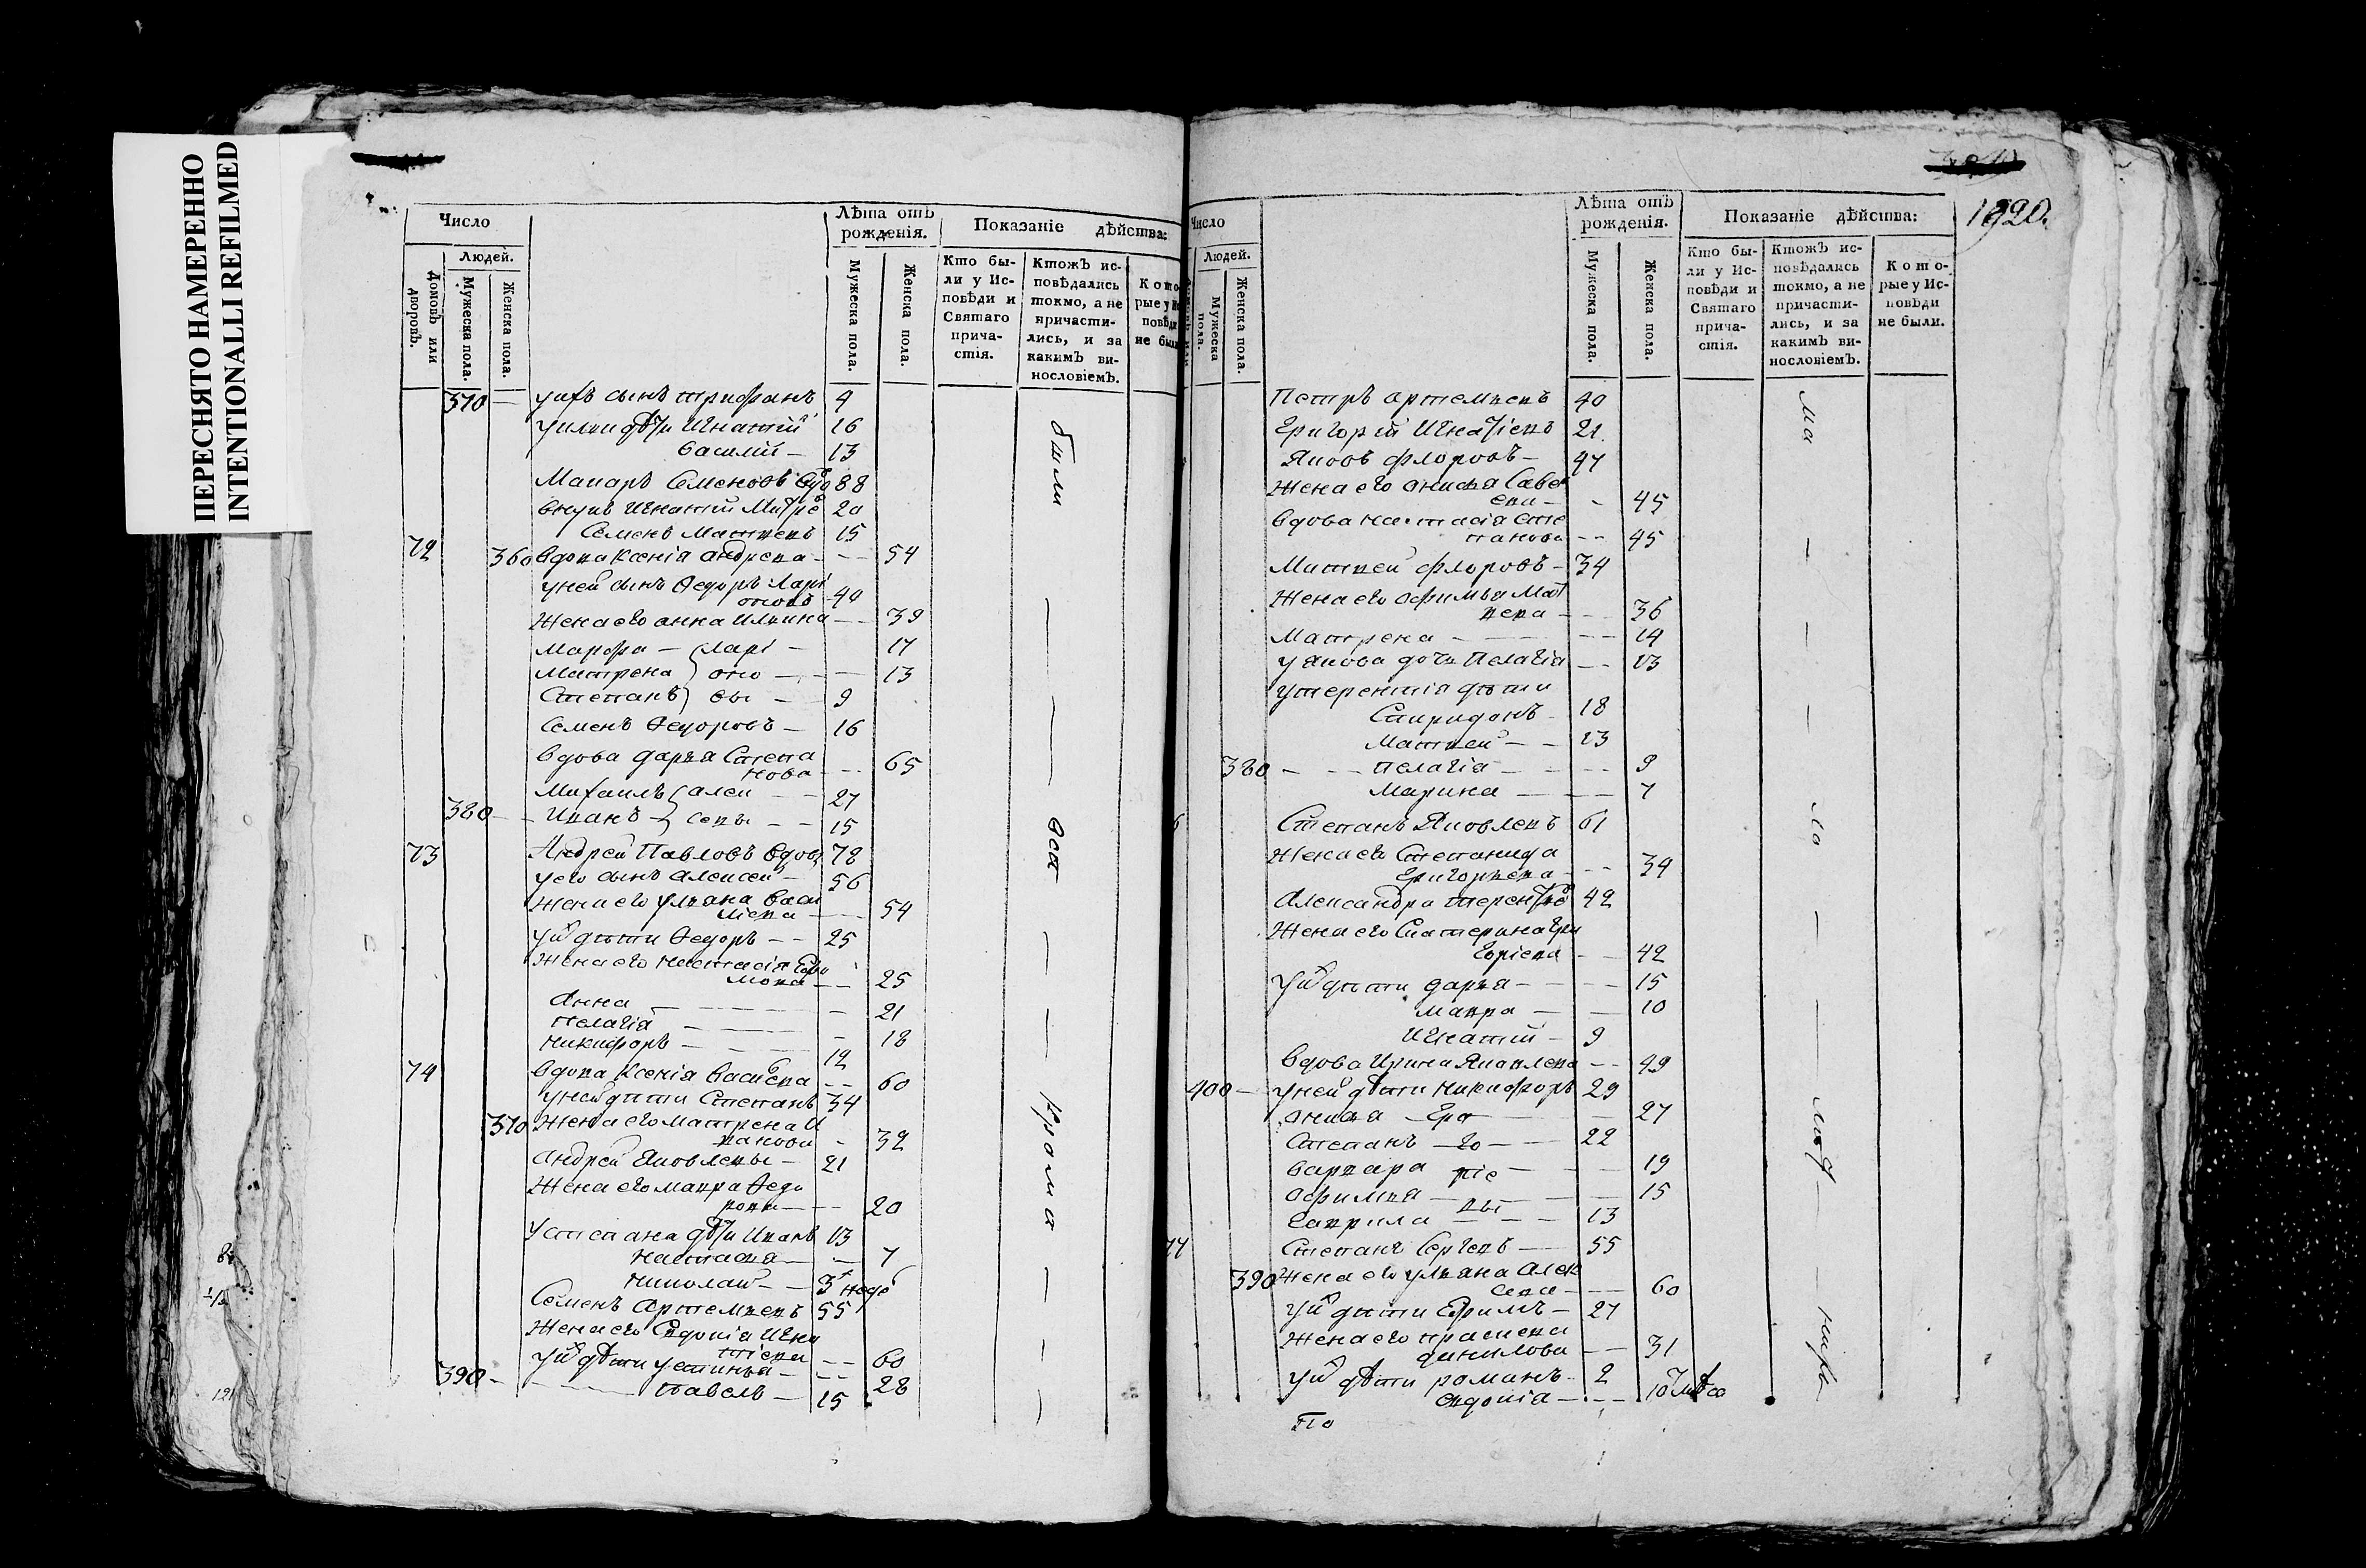 ПЕРЕСНЯТО НАМЕРЕННО
INTENTIONALLI REFILMED
Число
Лѣта отъ рожденія.
Показаніе дѣйства:
Людей.
Домовъ или дворовъ.
Мужеска пола.
Женска пола.
Мужеска пола.
Женска пола.
Кто бы-
ли у Ис-
повѣди и
Святаго
прича-
стія.
Ктожъ ис-
повѣдались
токмо, а не
причасти-
лись, и за
какимъ ви-
нословіемъ.
Кото-
рые у Ис
повѣди
не были
370 — ухъ сынъ трифанъ 9
Игнатій 16
василій — 13
Макаръ Семеновъ 88
внукъ Игнатій 20
Семенъ 15
72 360 вдова Ксенія андреева — 54
уней сынъ Ѳедоръ Ларі
оновъ 40
Жена его анна — 39
Марфа — Ларі — 17
Матрена оно — 13
Степанъ вы — 9
Семенъ Ѳедоровъ — 16
вдова дарья Степа
нова — 65
Михаилъ алек — 27
380 — Иванъ — сеевы — 15
73 Андрей Павловъ вдов 78
уего сынъ алексей — 56
Жена его ульяна васи
ліева — 54
дѣти Ѳедоръ — 25
Жена его настасія
мова — 25
Анна — 21
пелагія — 18
никифоръ — 12
74 вдова Ксенія — 60
уней дѣти Степанъ 34
370 Жена его матрена И
ванова — 32
андрей Яковлевы — 21
Жена его макра Ѳедо
рова — 20
У степана Иванъ 13
настасья — 7
николай — 3
Семенъ артемьевъ 55
Жена его Евдокія Игна
тіева — 60
дѣти устинья — 28
390 — павелъ — 15
были
Ѳеа
крома
1920.
Число
Лѣта отъ рожденія.
Показаніе дѣйства:
Людей.
Мужеска пола.
Женска пола.
Мужеска пола.
Женска пола.
Кто бы-
ли у Ис-
повѣди и
Святаго
прича-
стія.
Ктожъ ис-
повѣдались
токмо, а не
причасти-
лись, и за
какимъ ви-
нословіемъ.
Кото-
рые у Ис-
повѣди
не были.
Петръ артемьевъ 40
Григорій Игнатіевъ 21
Яковъ флоровъ — 47
Жена его анисья Саве
45
вдова настасія Сте
панова — 45
Матвей флоровъ — 34
Жена его афимья Мат
веева — 36
Матрена — 14
у якова дочь Пелагія — 13
утерентія дѣти
Спиридонъ 18
Матвей — 13
380 — пелагія — 9
Марина — 7
Степанъ Яковлевъ 61
Жена его Степанида
Григорьева — 34
Александра 42
Жена его Григорьева — 42
дѣти дарья — 15
макра — 10
Игнатій — 9
вдова Ирина Яковлева — 49
400 — уней дѣти никифоръ 29
анисья — Гри — 27
Степанъ — го — 22
варвара ріе — 19
афимья — 15
гаврила вы — 13
77 Степанъ Сергеевъ — 55
390 Жена его ульяна алек
сеева — 60
дѣти Ефимъ — 27
Жена его
данилова — 31
дѣти романъ — 2
Евдокія — 10
По
ма
ло